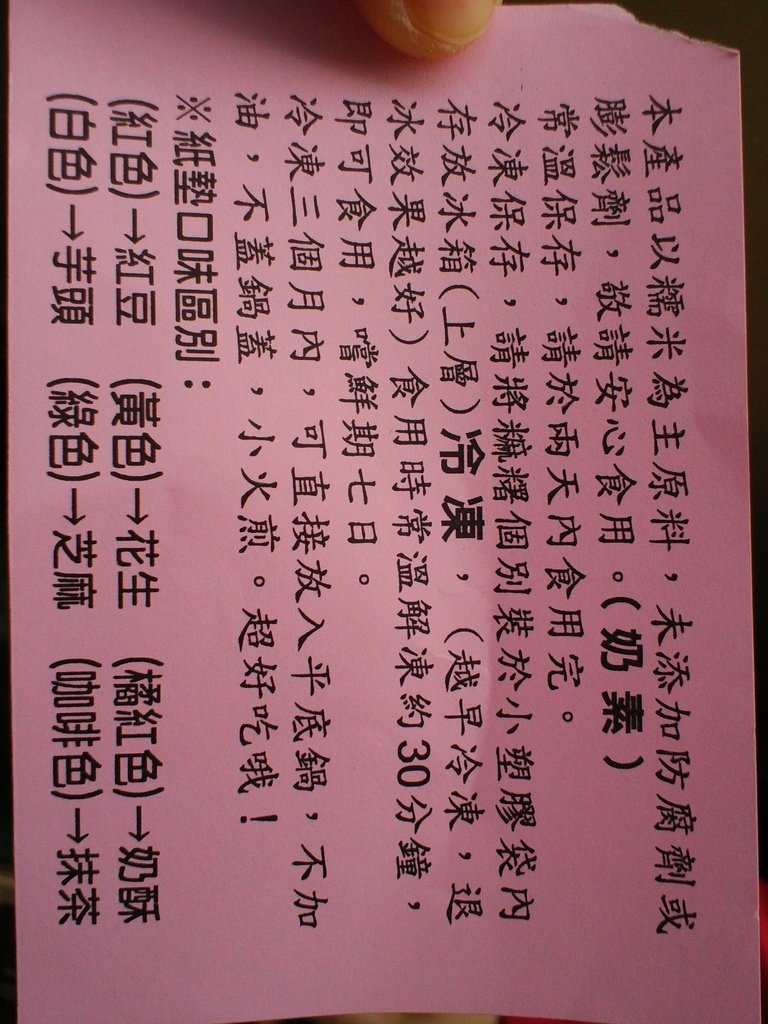 本產品以糯米為主原料，未添加防腐劑或
膨鬆劑，敬請安心食用。(奶素)
常溫保存，請於兩天內食用完。
冷凍保存，請將糍糬個別裝於小塑膠袋內
存放冰箱(上層)冷凍，（越早冷凍，退
冰效果越好）食用時常溫解凍約30分鐘，
即可食用，嚐鮮期七日。
冷凍三個月內，可直接放入平底鍋，不加
油，不蓋鍋蓋，小火煎。超好吃哦！
※紙墊口味區別：
(紅色)→紅豆 (黃色)→花生 (橘紅色)→奶酥
(白色)→芋頭 (綠色)→芝麻 (咖啡色)→抹茶